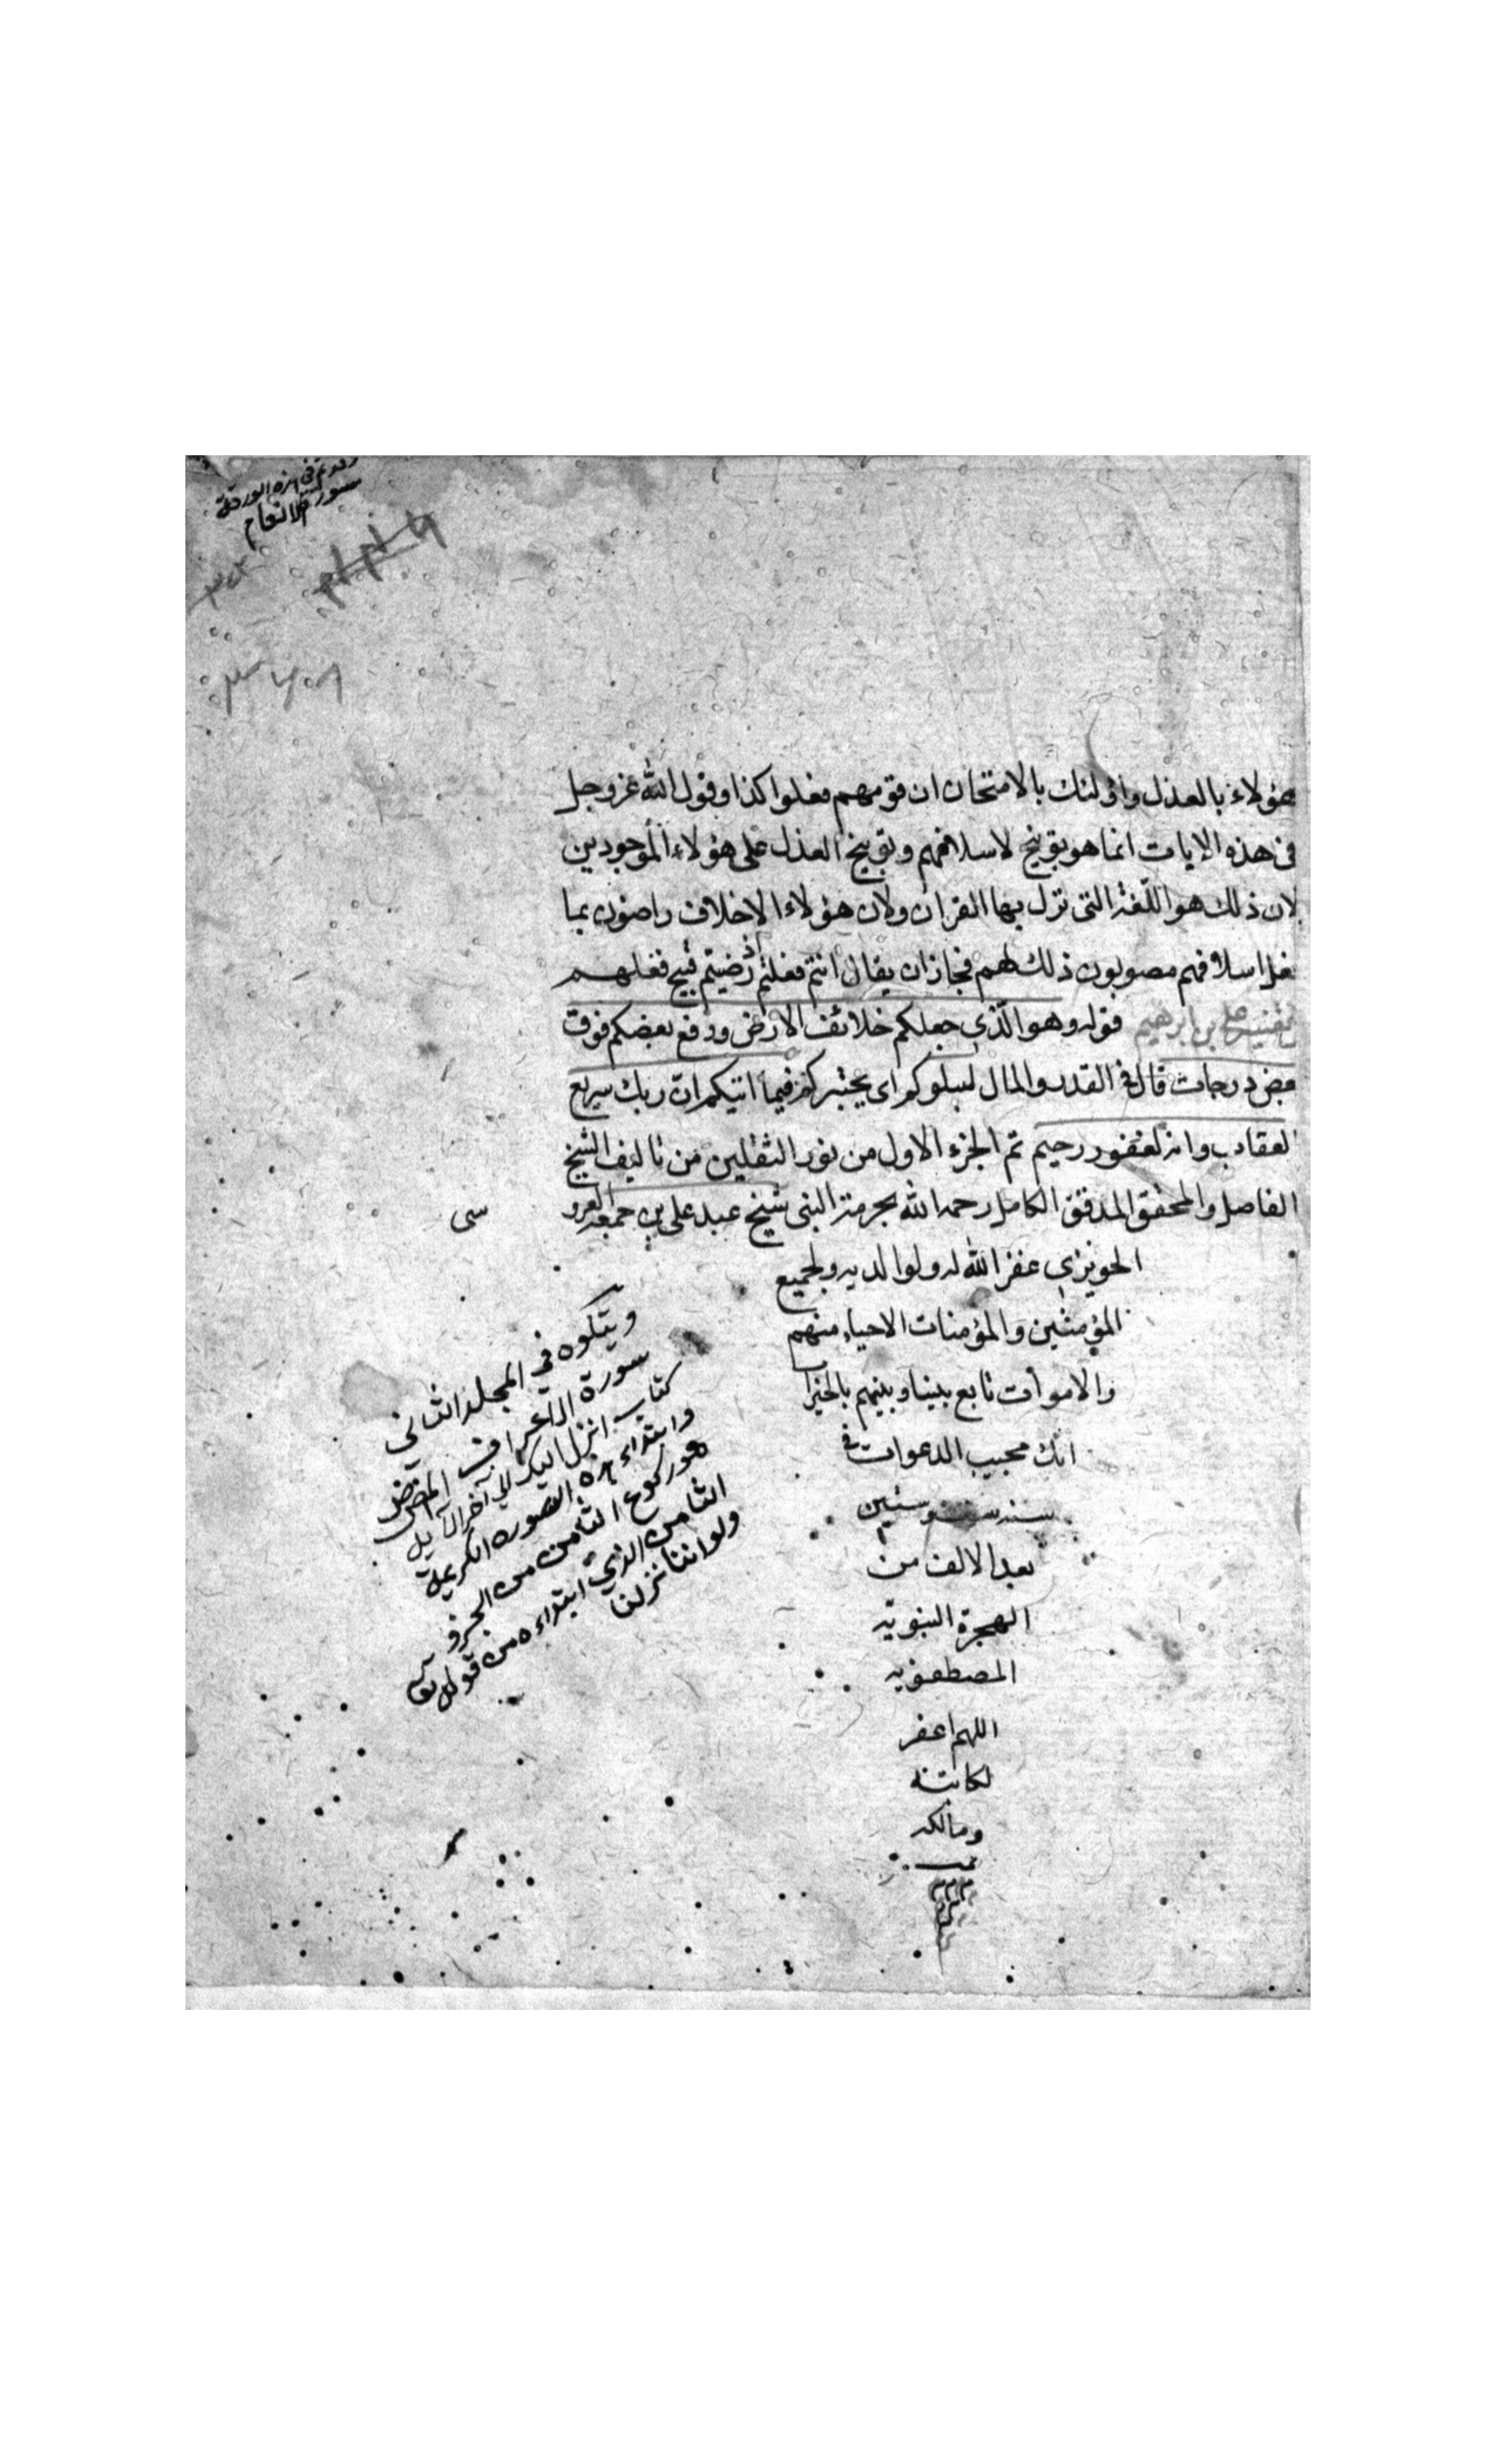 وقد تم في هذه الورقة
سورة الانعام
هؤلاء بالعذل واولئك بالامتحان ان قومهم فعلوا كذا وقول الله عز وجل
فى هذه الايات انما هو توبيخ لاسلافهم وتوبيخ العذل على هؤلاء الموجودين
لان ذلك هو اللغة التى نزل بها القران ولان هؤلاء الاخلاف راضون بما
فعل اسلافهم مصوبون ذلك لهم فجاز ان يقال انتم فعلتم اذ رضيتم قبيح فعلهم
تفسير على بن ابرهيم قوله وهو الذي جعلكم خلائف الارض ورفع بعضكم فوق
بعض درجات قال فى القدر والمال ليبلوكم اى يختبركم فيما اتيكم ان ربك سريع
العقاب وانه لغفور رحيم تم الجزء الاول من نور الثقلين من تاليف الشيخ
الفاضل والمحقق المدقق الكامل رحمه الله بحرمة النبى شيخ عبد على بن جمعه العرو سى
الحويزي غفر الله له ولوالديه ولجميع
المؤمنين والمؤمنات الاحياء منهم
والاموات تابع بيننا وبينهم بالخيرات
انك مجيب الدعوات فى
سنه ست وستين
بعد الالف من
الهجرة النبويه
المصطفويه
اللهم اغفر
لكاتبه
ومالكه
ويتلوه في المجلد الثاني
سورة الاعراف المص
كتاب انزل اليك الى آخر الآيه
وابتداء هذه السورة الكريمة
هو ركوع الثامن من الجزو
الثامن الذي ابتداءه من قوله تعا
ولو اننا نزلنا